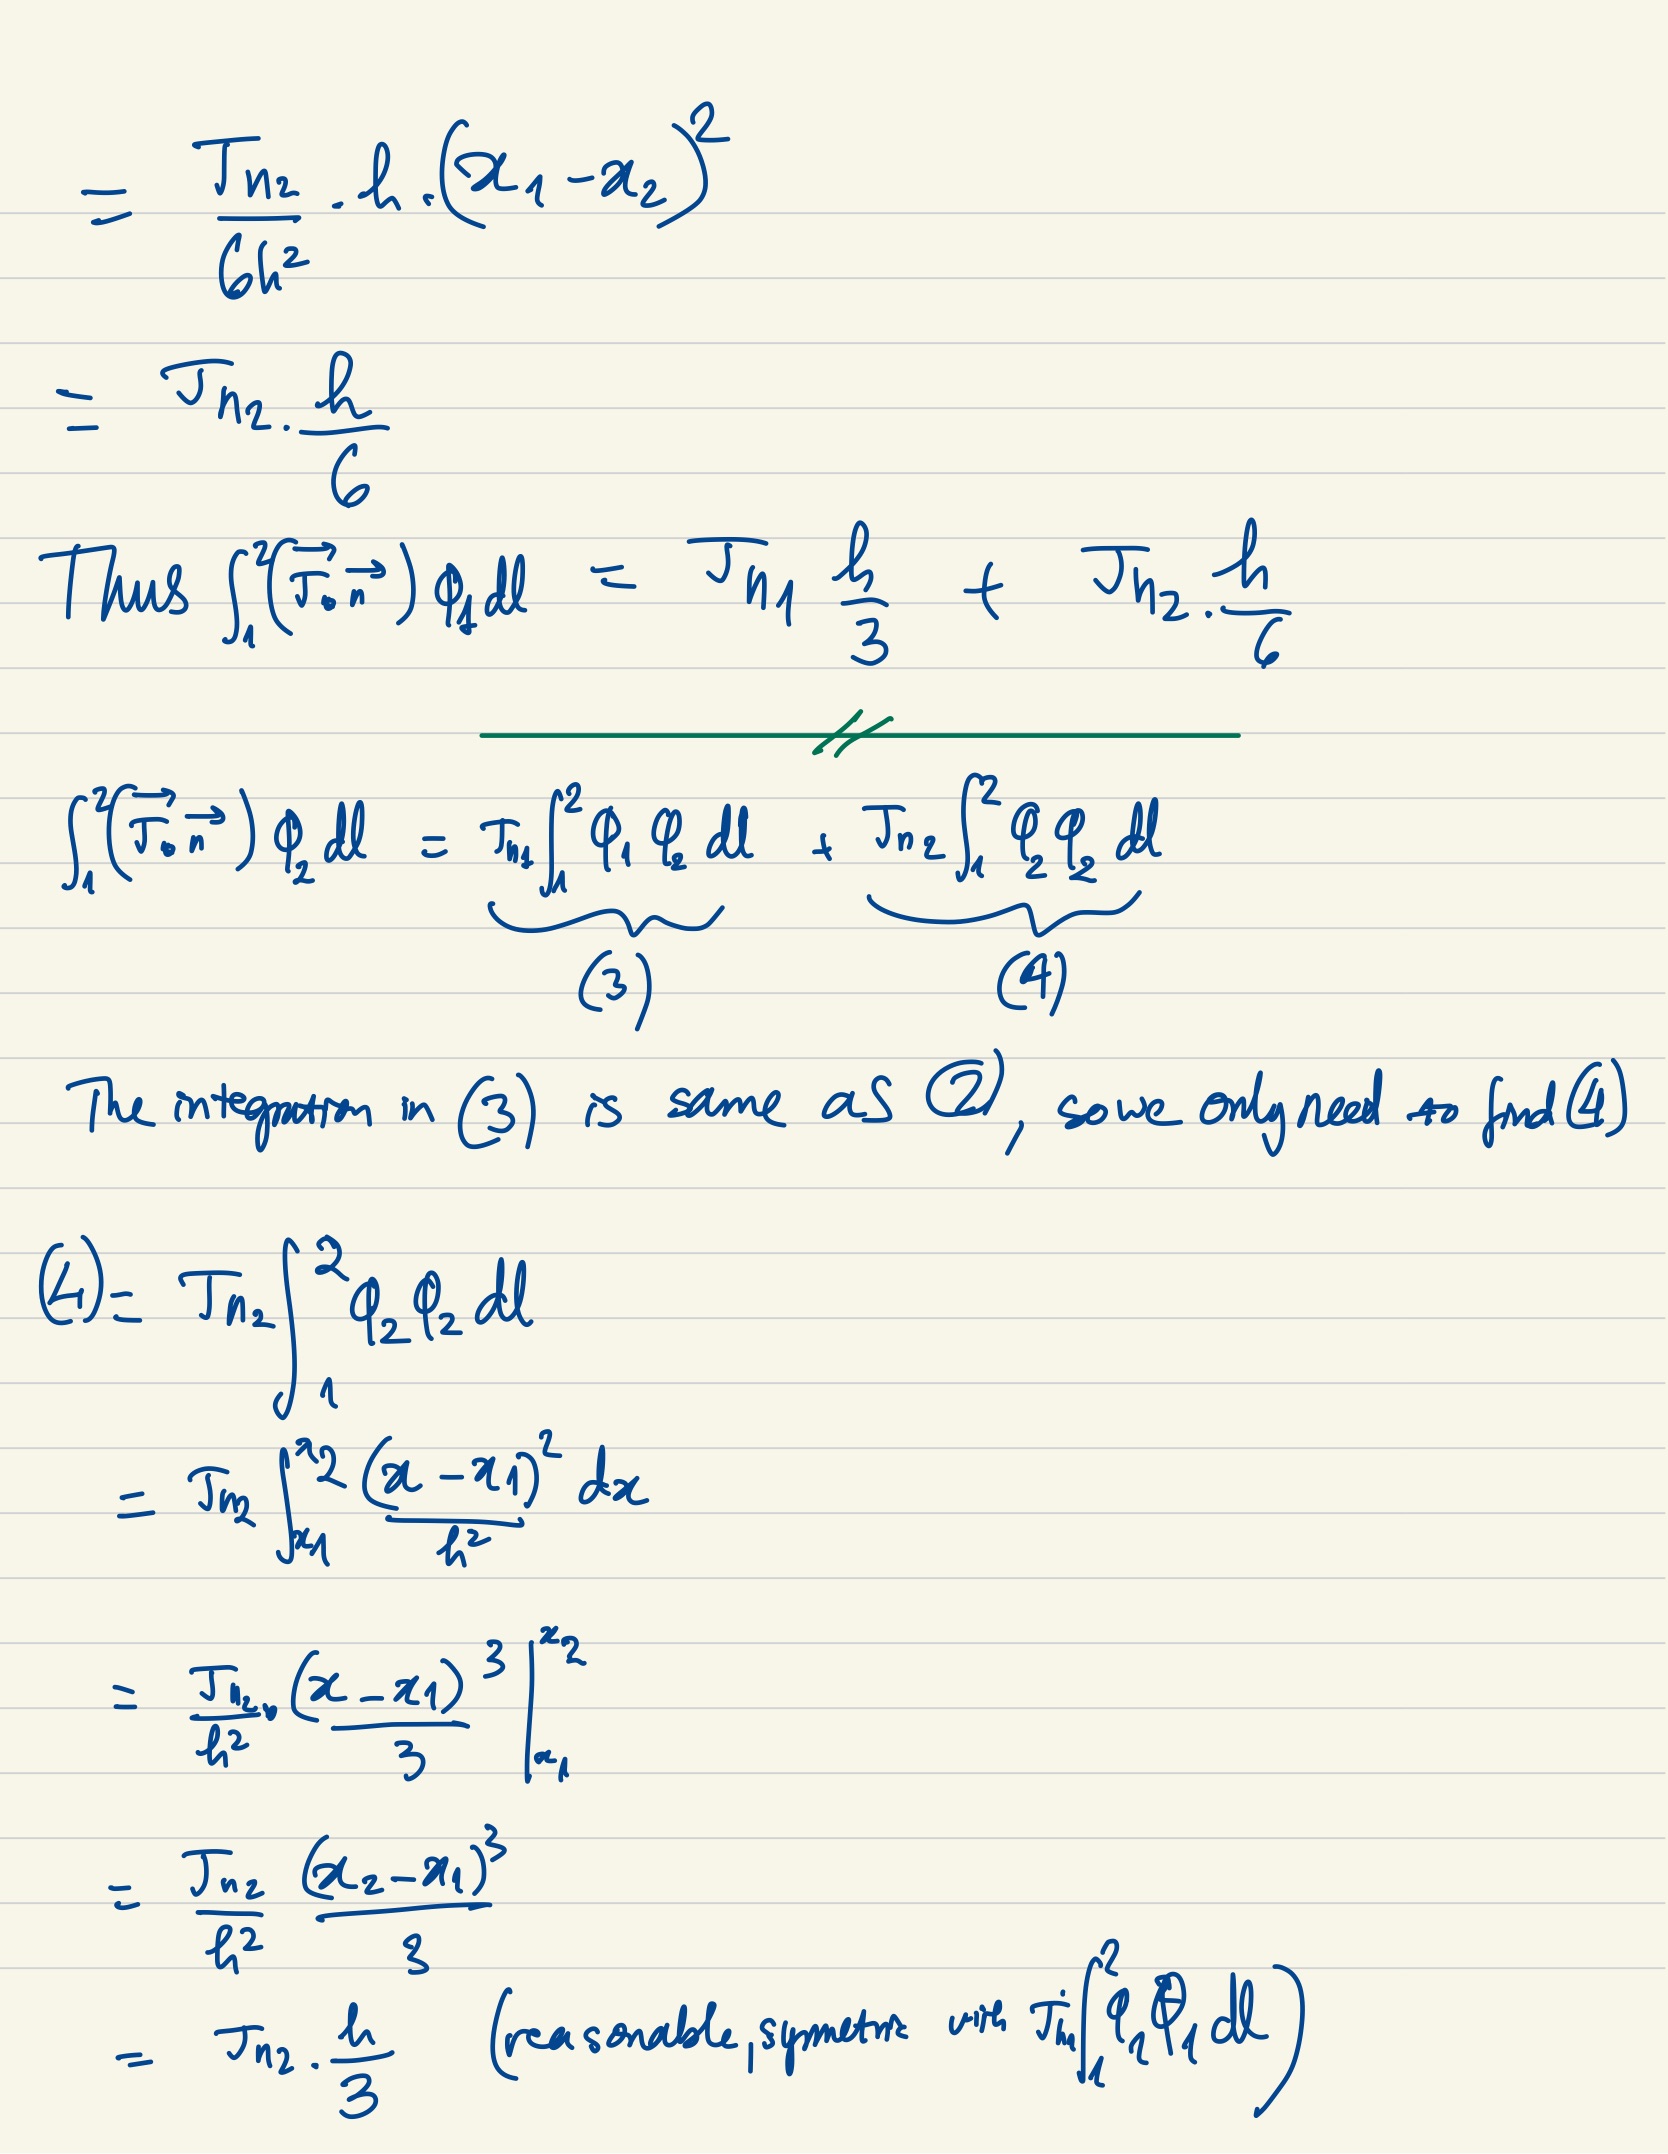 = J_{n2}/6h² · h · (x₁ - x₂)²
= J_{n2} · h/6
Thus ∫₁² (J⃗ · n⃗) φ₁ dl = J_{n1} h/3 + J_{n2} · h/6
∫₁² (J⃗ · n⃗) φ₂ dl = J_{n1} ∫₁² φ₁ φ₂ dl + J_{n2} ∫₁² φ₂ φ₂ dl
(3) (4)
The integration in (3) is same as (2), so we only need to find (4)
(4) = J_{n2} ∫₁² φ₂ φ₂ dl
= J_{n2} ∫_{x₁}^{x₂} (x - x₁)²/h² dx
= J_{n2}/h² · (x - x₁)³/3 |_{x₁}^{x₂}
= J_{n2}/h² (x₂ - x₁)³/3
= J_{n2} · h/3 (reasonable, symetric with J_{n1} ∫₁² φ₁ φ₁ dl)